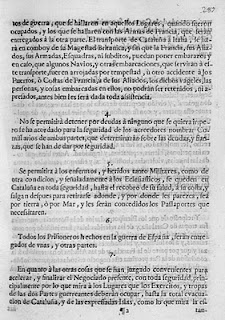 tes de guerra, que se hallaren en aquellos Lugares, quando fueren
ocupados, y los que se hallaren con las Armas de Francia, que seran
entregados à la otra parte. El transporte de Cataluña à Italia se hara
en comboy de la Magestad Britanica, y sin que la Francia, sus Alia-
dos, sus Armadas, Esquadras, ni subditos, puedan poner embaraço; y
en caso, que algunos Navios, y embarcaciones, que serviran à este
transporte, fuesen arrojadas por tempestad, ù otro accidente à los
Puertos, ò Costas de Francia, ò de sus Aliados, los dichos baxeles, las
personas, y cosas embarcadas en ellos, no podràn ser detenidos, ni ar-
restados, antes bien les serà dada toda assistencia.
4.
No se permitirà detener por deudas à ninguno que se quiera ir, pe-
ro se ha acordado para la seguridad de los acreedores nombrar Co-
missarios de ambas partes, que determinaràn sobre las deudas, y fian-
ças, que se han de dar por seguridad.
5.
Se permitirà à los enfermos, y heridos tanto Militares, como de
otra condicion, y señaladamente à los Eclesiasticos, se queden en
Cataluña en toda seguridad, hasta el recobro de su salud, ò su cura, y
salgan despues para retirarse adonde, y por donde les parezca, ò
por tierra, ò por Mar, y les seràn concedidos los Passaportes que
necessitaren.
6.
Todos los Prisioneros hechos en la guerra de España, seràn encar-
gados de unas, y otras partes.
7.
En quanto à las otras cosas que se han juzgado convenientes para
acelerar, y finalizar el Negociado presente, con toda seguridad, prin-
cipalmente por lo que mira à los Lugares que los Exercitos, y tropas
de las dos Partes guerreantes deberàn ocupar, hasta la total evacua-
cion de Cataluña, y de las expressadas Islas, como lo que mira la ci-